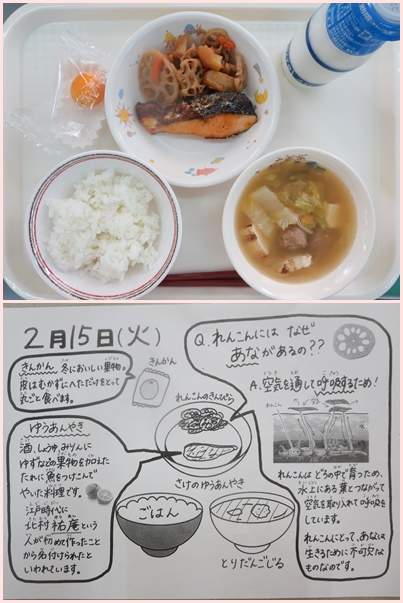 2月15日(火)
きんかん 冬においしい果物。
皮はむかずにへただけをとって
丸ごと食べます。
きんかん
Q.れんこんには なぜ
あながあるの??
A.空気を通して呼吸するため!
れんこんのきんぴら
れんこん
ゆうあんやき
酒、しょうゆ、みりんに
ゆずなどの果物を加えた
たれに魚をつけこんで
やいた料理です。
江戸時代に
北村祐庵という
人が初めて作ったこと
から名付けられたと
いわれています。
さけのゆうあんやき
ごはん
とりだんごじる
れんこんは どろの中で育つため、
水上にある葉とつながって
空気を取り入れて呼吸を
しています。
れんこんにとって、あなは
生きるために不可欠な
ものなのです。